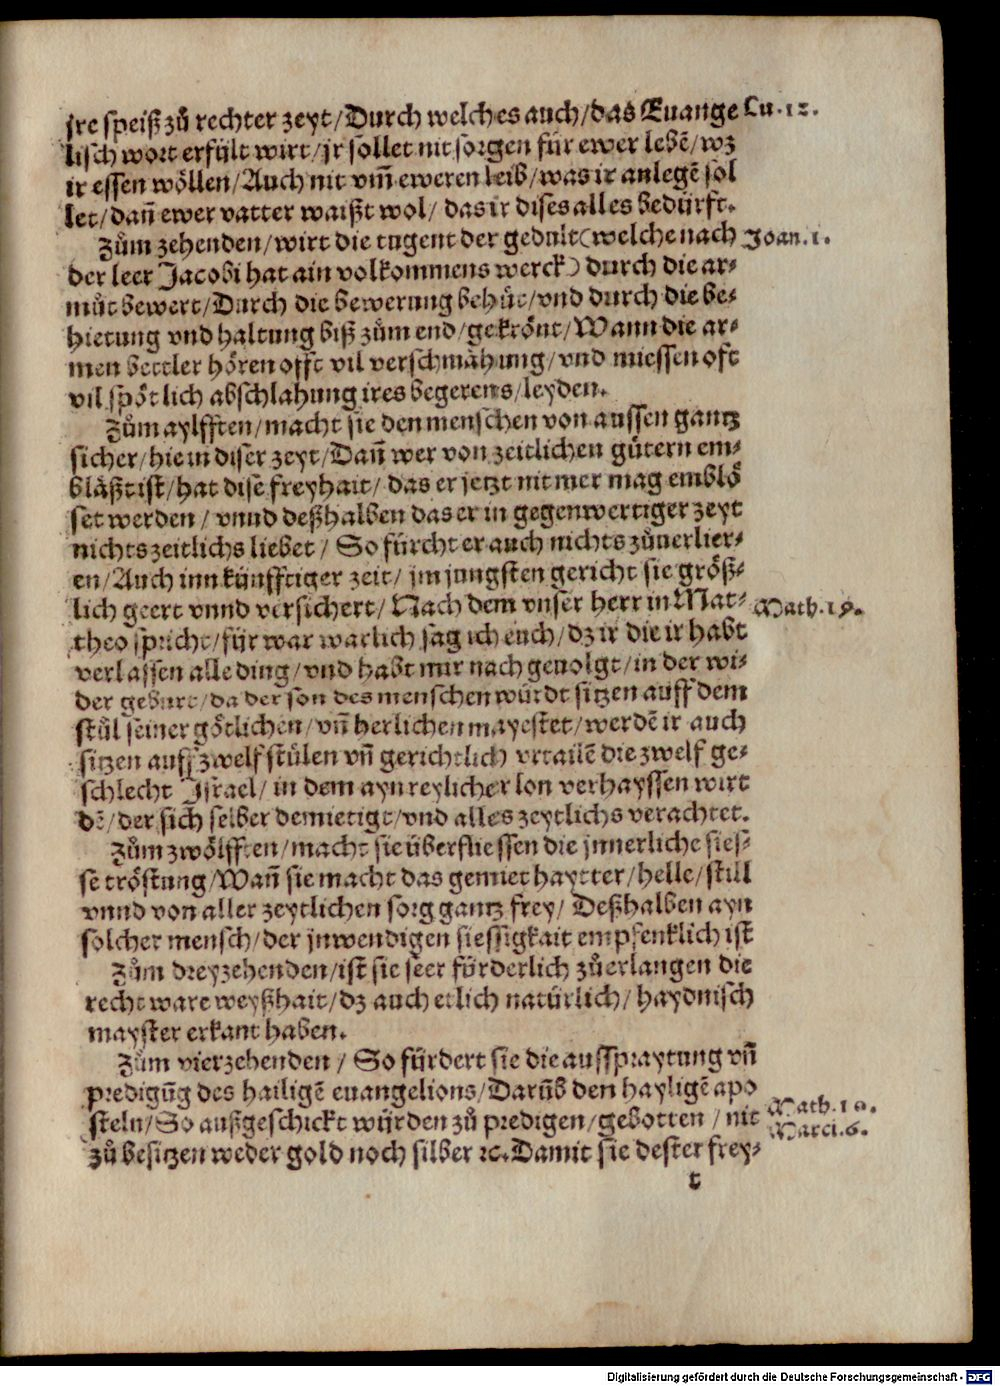 jre speiß zů rechter zeyt/Durch welches auch/das Euange Lu.12.
lisch wort erfült wirt/jr sollet nit sorgen für ewer lebẽ/wz
ir essen wöllen/Auch nit vm̃ eweren leib/was ir anlegẽ sol
let/dañ ewer vatter waißt wol/das ir dises alles bedürft.
Zům zehenden/wirt die tugent der gedult(welche nach Joan.1.
der leer Jacobi hat ain volkommens werck) durch die ar-
můt bewert/Durch die bewerung behüt/vnd durch die be-
hietung vnd haltung biß zům end/gekrönt/Wann die ar-
men bettler hören offt vil verschmähung/vnd miessen oft
vil spötlich abschlahung ires begerens/leyden.
Zům aylfften/macht sie den menschen von aussen gantz
sicher/hie in diser zeyt/Dañ wer von zeitlichen gütern em-
blößt ist/hat dise freyhait/das er jetzt nit mer mag emblö
set werden/vnnd deßhalben das er in gegenwertiger zeyt
nichts zeitlichs liebet/So fürcht er auch nichts zůuerlier-
en/Auch inn künfftiger zeit/jm jungsten gericht sie größ-
lich geert vnnd versichert/Nach dem vnser herr in Mat- Math.19.
theo spricht/für war warlich sag ich euch/dz ir die ir habt
verlassen alle ding/vnd habt mir nach geuolgt/in der wi-
der geburt/da der son des menschen würdt sitzen auff dem
stůl seiner götlichen/vñ herlichen mayestet/werdẽ ir auch
sitzen auff zwelf stůlen vñ gerichtlich vrtailẽ die zwelf ge-
schlecht Israel/in dem ayn reylicher lon verhayssen wirt
dẽ/der sich selber demietigt/vnd alles zeytlichs verachtet.
Zům zwölfften/macht sie überfliessen die jnnerliche sies-
se tröstung/Wañ sie macht das gemiet haytter/helle/still
vnnd von aller zeytlichen sorg gantz frey/Deßhalben ayn
solcher mensch/der jnwendigen siessigkait empfenklich ist
Zům dreyzehenden/ist sie seer fürderlich zů erlangen die
recht ware weyßhait/dz auch etlich natürlich/haydnisch
mayster erkant haben.
Zům vierzehenden/So fürdert sie die ausspraytung vñ
predigũg des hailigẽ euangelions/Darũb den hayligẽ apo
steln/So außgeschickt würden zů predigen/gebotten/nit Math.10.
zů besitzen weder gold noch silber ꝛc.Damit sie dester frey- Marci.6.
t
Digitalisierung gefördert durch die Deutsche Forschungsgemeinschaft - DFG